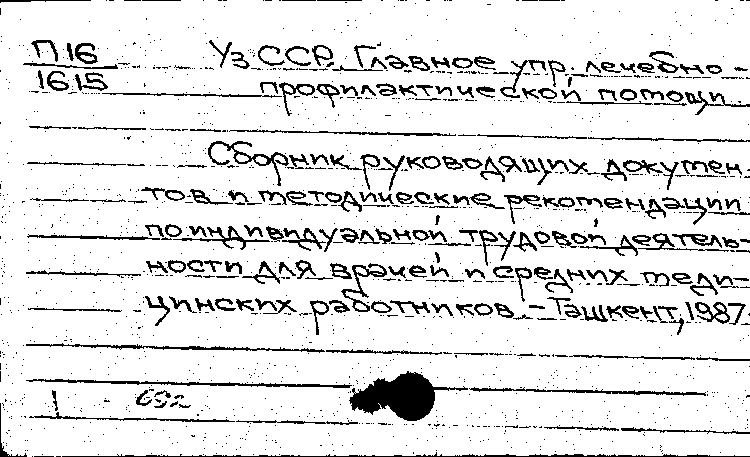 П16
1615
УзССР. Главное упр. лечебно-
профилактической потощи.
Сборник руководящих докумен-
тов и методические рекомендации
по индивидуальной трудовой деятель-
ности для врачей и средних меди-
цинских работников. - Ташкент, 1987
1
692